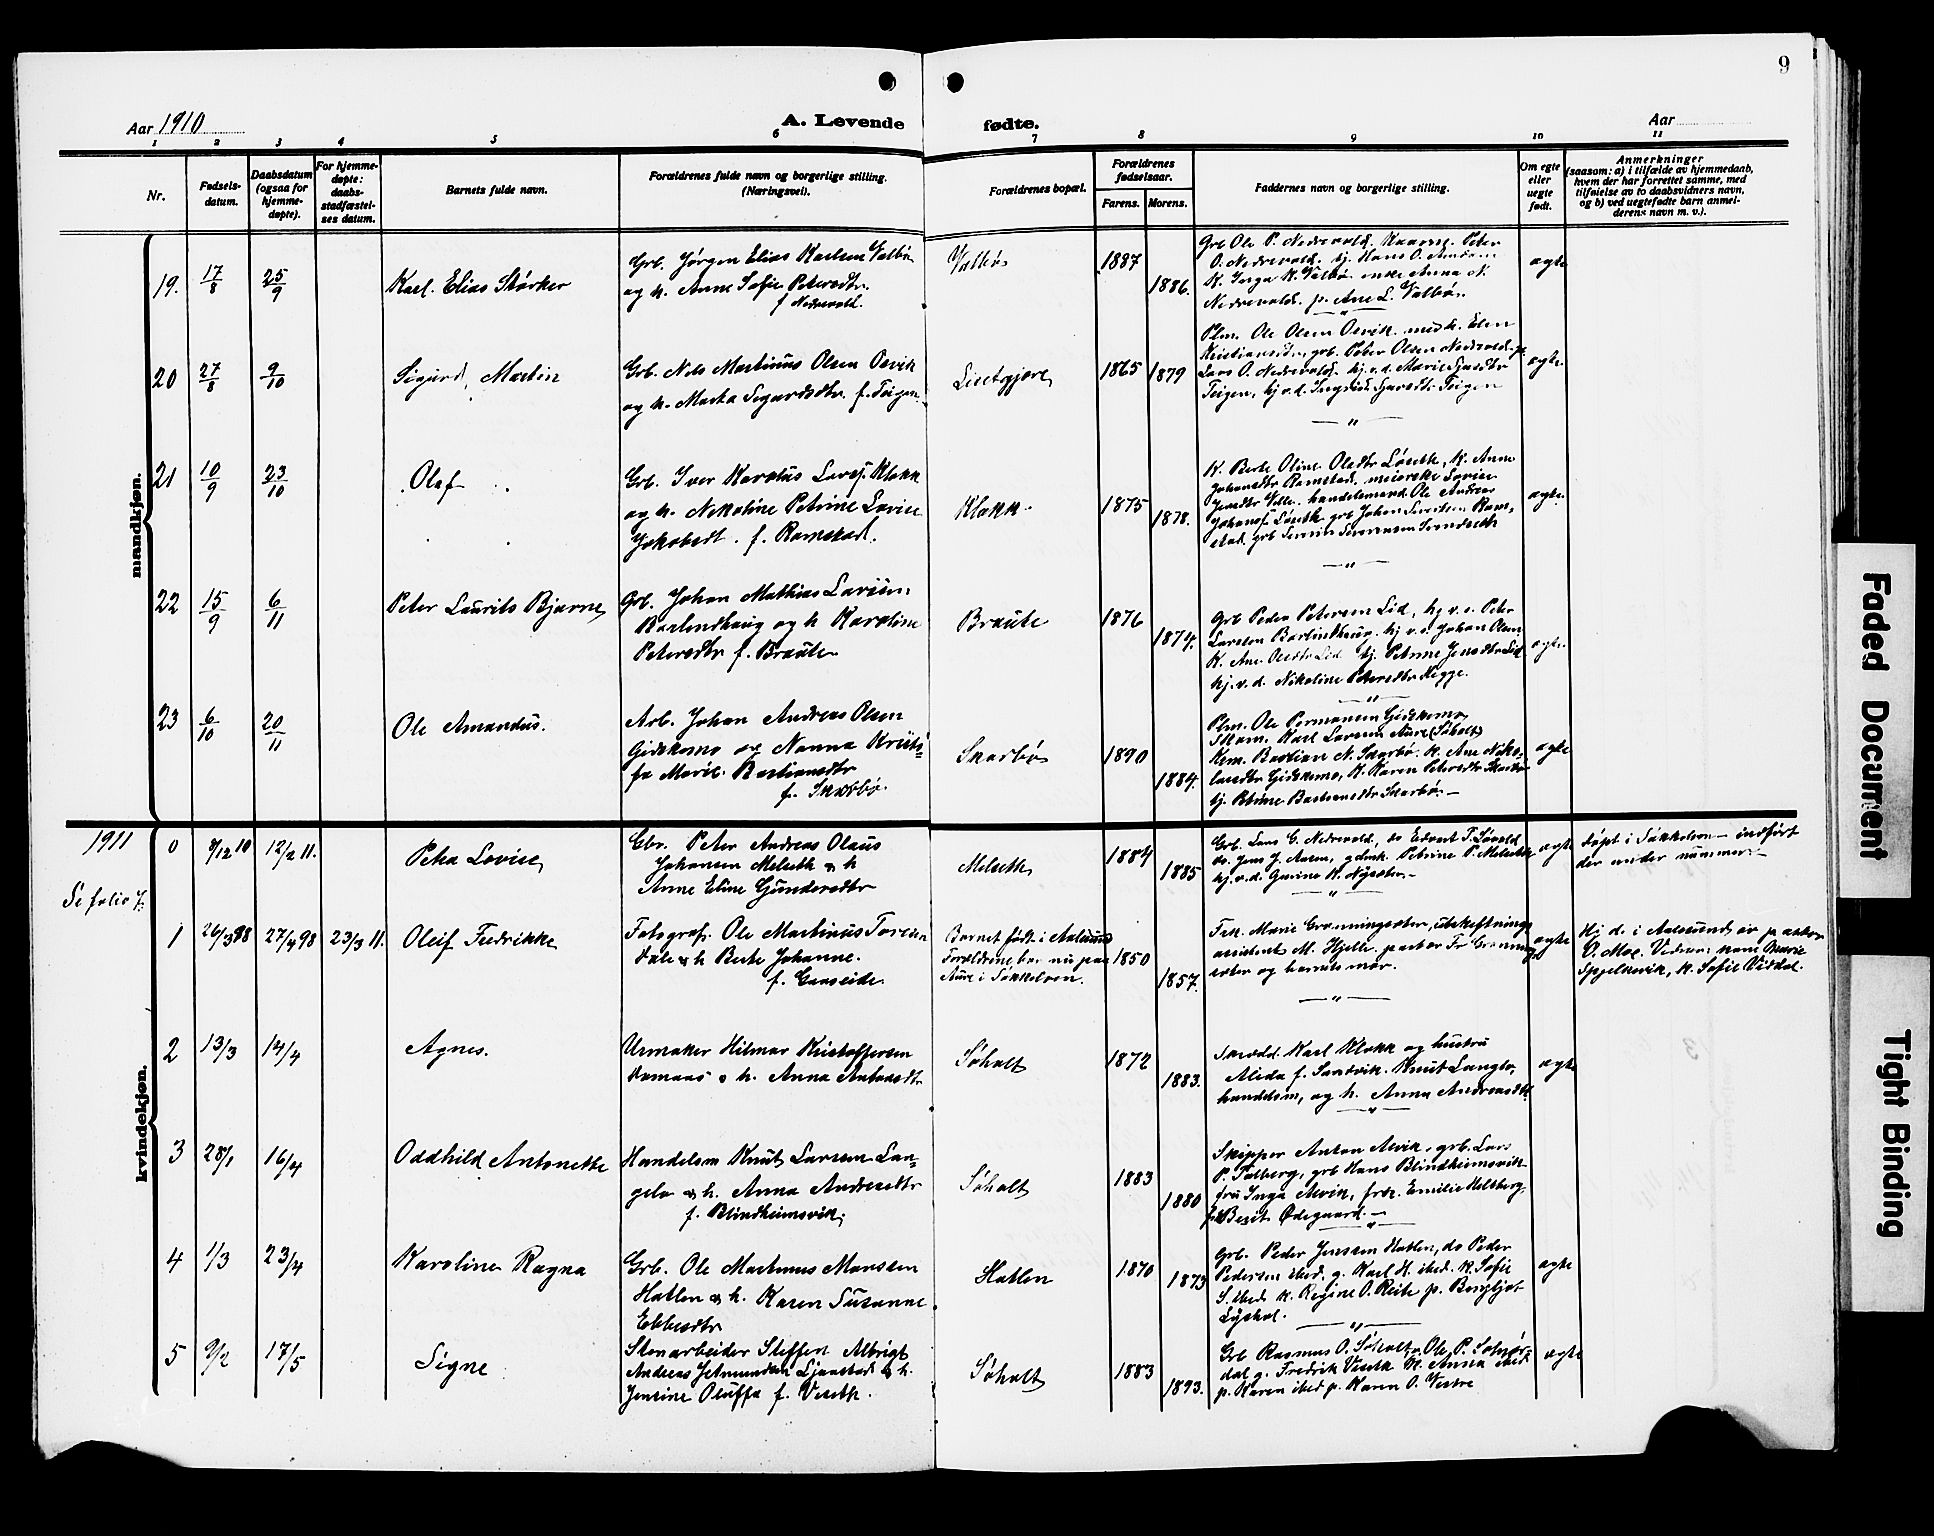 9
Aar 1910
A. Levende
fødte.
Aar
1 2 3 4 5 6 7 8 9 10 11
Nr.
Fødsels-
datum.
Daabsdatum
(ogsaa for
hjemme-
døpte).
For hjemme-
døpte:
daabs-
stadfæstel-
ses datum.
Barnets fulde navn.
Forældrenes fulde navn og borgerlige stilling.
(Næringsvei).
Forældrenes bopæl.
Forældrenes
fødselsaar.
Farens. Morens.
Faddernes navn og borgerlige stilling.
Om egte
eller
uegte
født.
Anmerkninger
(saasom: a) i tilfælde av hjemmedaab,
hvem der har forrettet samme, med
tilføielse av to daabsvidners navn,
og b) ved uegtefødte barn anmel-
derens navn m. v.).
mandkjøn.
19. 17/8 25/9 Karl Elias Størker
Grb. Jørgen Elias Karlsen Valbø
og h. Anne Sofie Petersdtr.
f. Nedrevold.
Valbø 1887 1886.
Grb Ole P. Nedrevold. Peter
O. Nedrevold. tj. Hans O.
K. Inga K. Valbø. enke Anna
Nedrevold. p. Ane L. Valbø.
egte
20 27/8 9/10 Sigurd Martin
Grb. Nils Martinus Olsen Osvik
og h. Marta Sigurdsdtr. f. Teigen
1865 1879
Plm. Ole Olsen Osvik. med h. Elen
grb. Peter Olsen Nedrevold. p.
Lars O. Nedrevold. hj. v. d. Marie
Teigen, hj. v. d. Ingrid Teigen
egte.
21 10/9 23/10 Olaf
Grb. Iver Karolus Larsen Klokk
og h. Nikoline Petrine Lovise
Jakobsdt. f. Ramstad.
Klokk. 1875 1878.
K. Berte Oline Olsdtr Løseth, K. Anne
Johansdtr Ramstad, meierske Lovise
Velle. handelsmand Ole Andreas
egte.
22 15/9 6/11 Peter Laurits Bjarne
Grb. Johan Mathias Larsen
Barlindhaug og h Karoline
Petersdtr f. Braute
Braute 1876 1874.
Grb Peder Petersen Lid, hj v. s. Peter
Larsen Barlindhaug. hj v. s. Johan Olsen
K. Ane Olsdtr Lid tj. Petrine Jensdtr Lid
hj. v. d. Nikoline Petersdtr Hegge.
egte.
23 6/10 20/11 Ole Amandus.
Arb. Johan Andreas Olsen
Gidskemo og Nanna Kristi-
Marie Bastiansdtr
f. Skarbø.
Skarbø 1890 1884.
Plm. Ole Permansen Gidskemo,
Skom. Karl Larsen Aure (Søholt)
Bastian N. Skarbø. K. Ane Niko-
lasdtr Gidskemo, K. Karen Petersdtr Skarbø
tj. Petrine Bastiansdtr Skarbø.
egte
1911
Se folio 7.
kvindekjøn.
0 7/12 10 12/2 11. Petra Lovise
Gbr. Peter Andreas Olaus
Johansen Melseth & h
Anne Eline Gundersdtr
Melseth 1884 1885
Grb. Lars C. Nedrevold, do Edvart T. Løvold
do. Jens J. Aasen, gdmk. Petrine P. Melseth
hj. v. d. Gurine K. Nysæter.
egte
Døpt i Søkkelven – indført
der under nummer
1 26/3 98 27/4 98 23/3 11. Oleif Fredrikke
Fotograf Ole Martinus
Dale & h Berte Johanne.
f. Gaaseide.
Barnet født i Aalesund
Forældrene bor nu paa
Aure i Søkkelven.
1850 1857.
Frk. Marie Grønningsæter, utskiftnings
assistent M. Hjelle. pastor Fr Grønning-
sæter og barnets mor.
egte
Hj d. i Aalesund av pastor
O. Moe. Vidner: Marie
Spjelkavik, K. Sofie Viddal.
2 13/3 14/4 Agnes.
Urmaker Hilmar Kristoffersen
Damaas & h. Anna Antonsdtr
Søholt 1872 1883.
Karl Klokk og hustru
Alida f. Sandvik. Knut Langlo,
handelsm, og h. Anna Andreasdtr
egte
3 28/1 16/4 Oddhild Antonette
Handelsm Knut Larsen Lan-
gelo & h. Anna Andreasdtr
f. Blindheimsvik.
Søholt 1883 1880
Skipper Anton Alvik, grb. Lars
P. Solberg, grb Hans Blindheimsvik
fru Inga Alvik, frk. Emilie Helsberg,
frk Berit Ødegaard.
4 1/3 23/4 Karoline Ragna
Grb. Ole Martinus Monssen
Hatlen & h. Karen Susanne
Ebbesdtr
Hatlen 1870 1873
Grb. Peder Jenssen Hatlen, do Peder
Pedersen ibed. g. Karl H. ibed. K. Sofie
S. ibed. K. Regine O. Reite p. Bergljot
Lyshol.
egte
5 9/2 17/5 Signe
Stenarbeider Steffen Albrigt
Andreas Jetmundsen Ljønstad & h.
Jensine Oluffa f. Viseth.
Søholt 1883 1893.
Grb Rasmus O. Søholt, Ole P. Solnør-
dal g. Fredrik Viseth K. Anna ibed
p. Karen ibed p. Karen O. Vestre
egte
Faded Document
Tight Binding